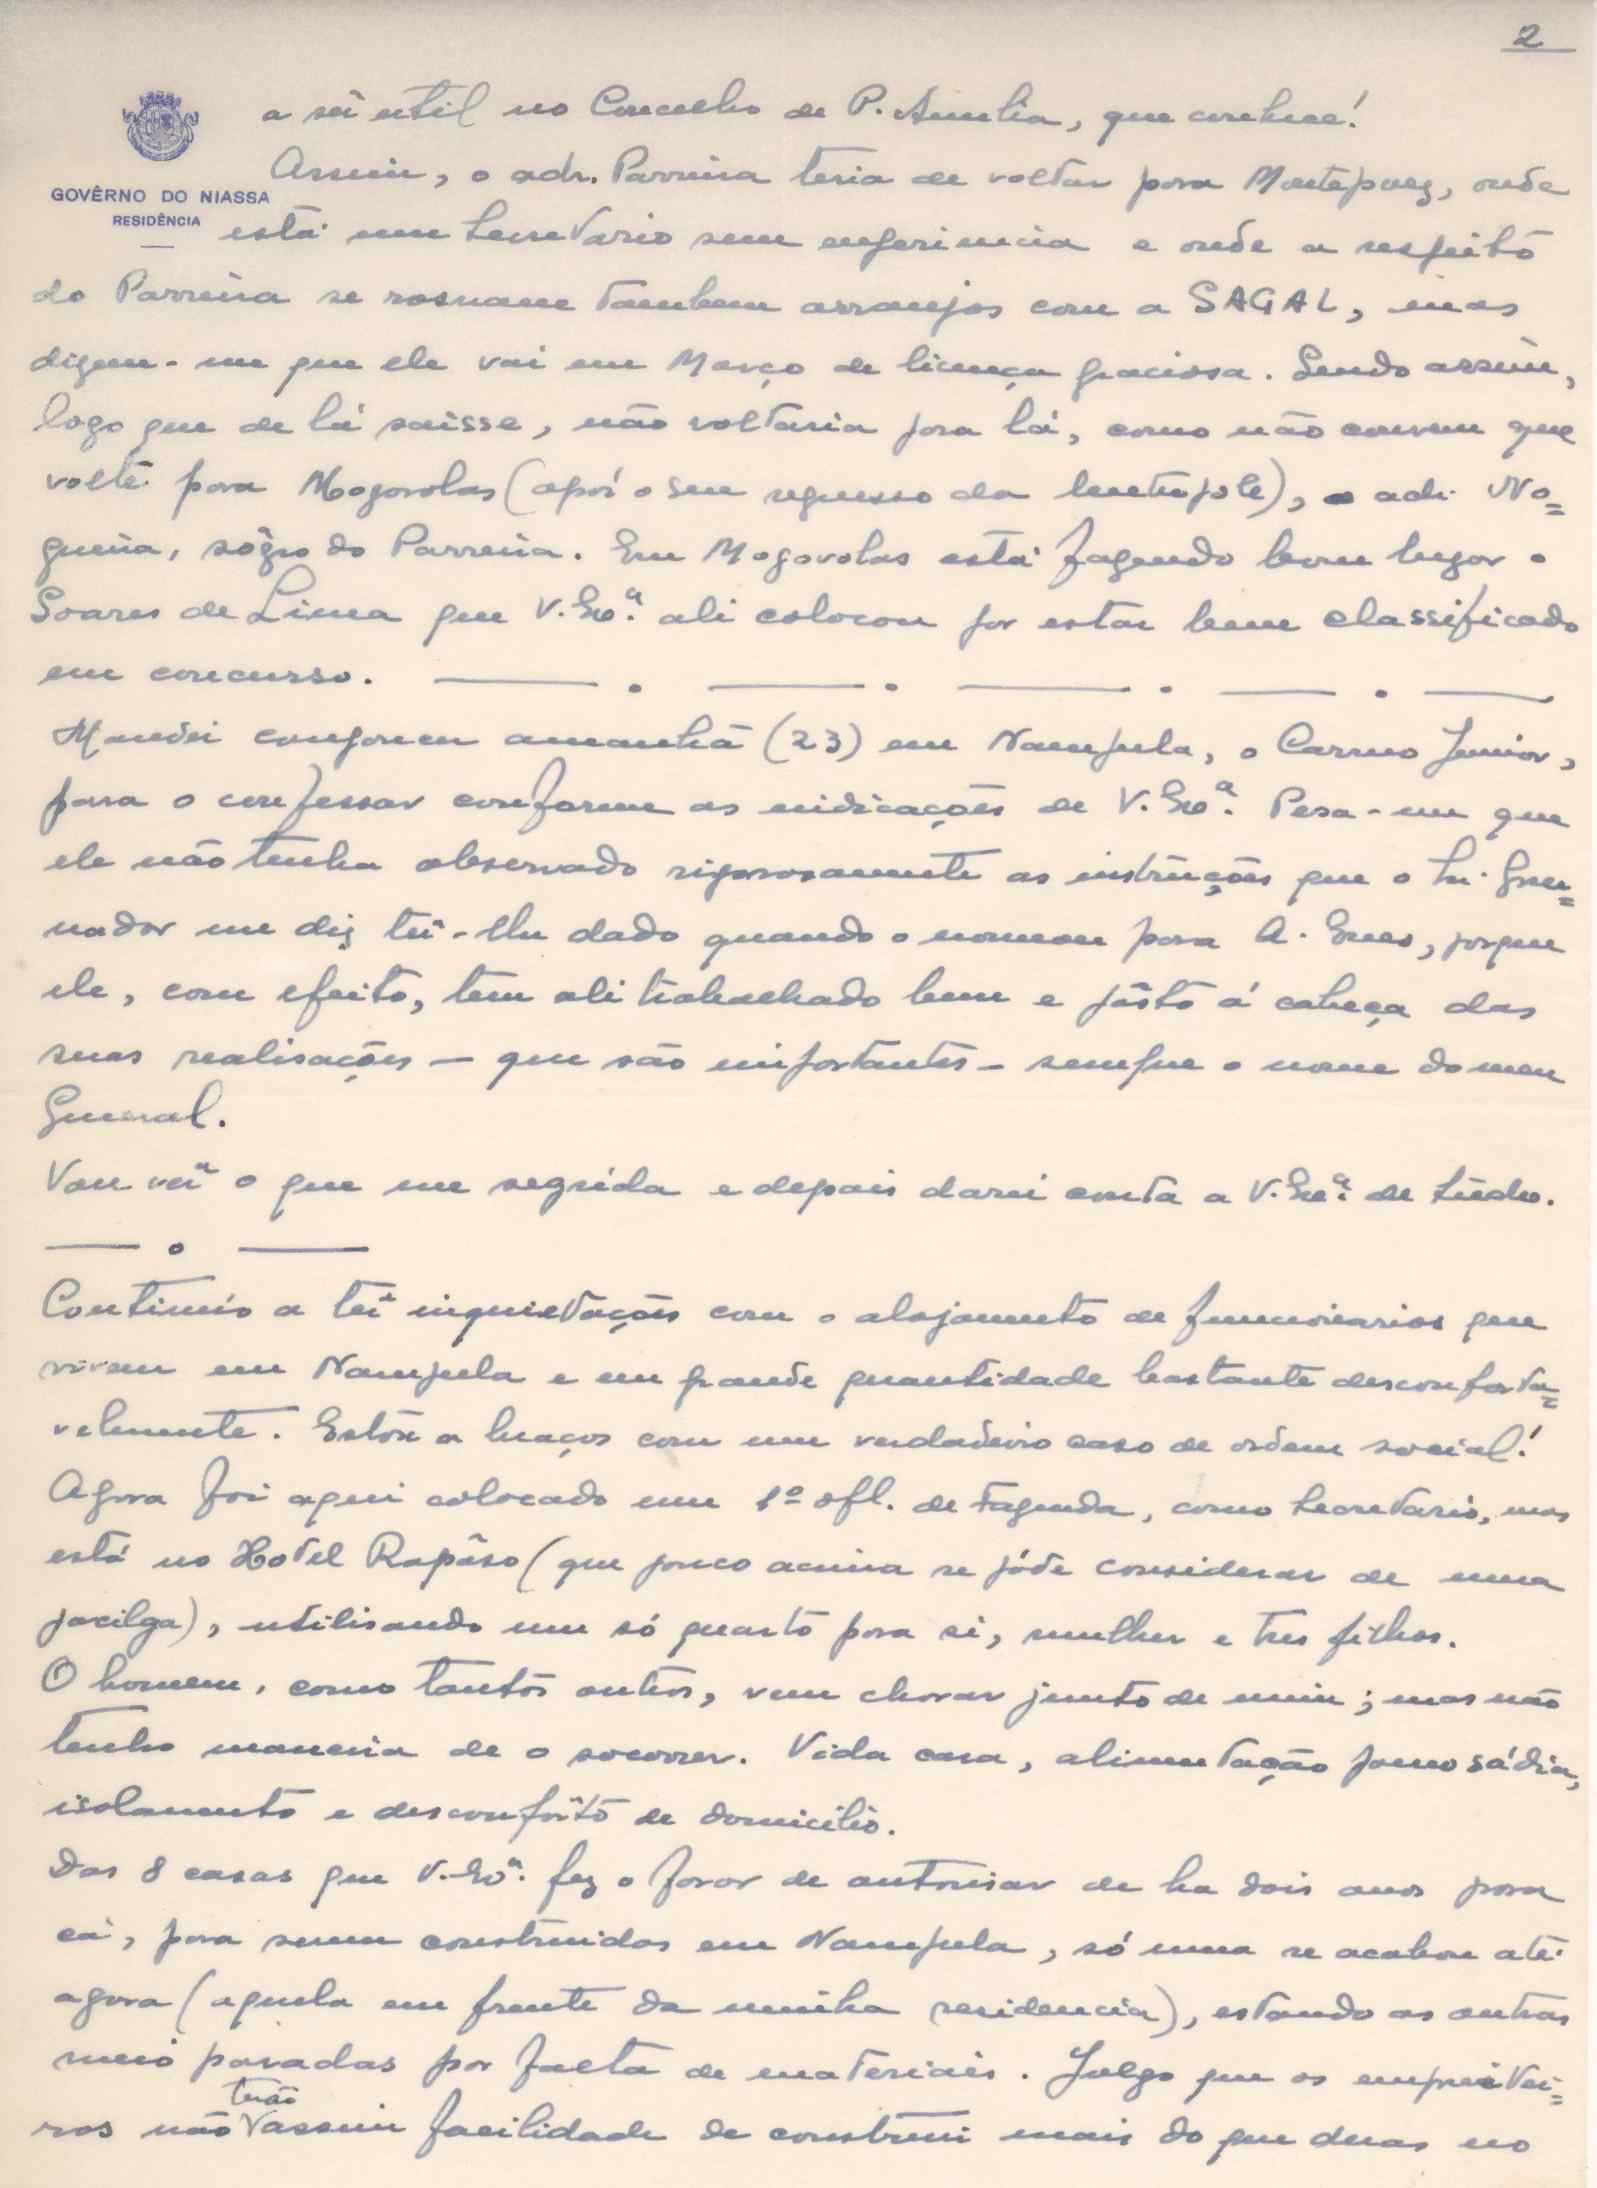 2
GOVÊRNO DO NIASSA
RESIDÊNCIA
a sêr util no Concelho de P. Amelia, que conhece!
Assim, o adr. Parreira teria de voltar para Montepuez, onde
está um secretario sem experiencia e onde a respeito
do Parreira se rosnam tambem arranjos com a SAGAL, mas
dizem-me que ele vai em Março de licença graciosa. Sendo assim,
logo que de lá saisse, não voltaria para lá, como não convem que
volte para Mogovolas (após o seu regresso da metropole), o adr. No=
gueira, sôgro do Parreira. Em Mogovolas está fazendo bom lugar o
Soares de Lima que V. Exª. ali colocou por estar bem classificado
em concurso.
Mandei comparecer amanhã (23) em Nampula, o Carmo Junior,
para o confessar conforme as indicações de V. Exª. Pesa-me que
ele não tenha observado rigorosamente as instruções que o Snr. Gover=
nador me diz têr-lhe dado quando o nomeou para A. Enes, porque
ele, com efeito, tem ali trabalhado bem e pôsto á cabeça das
suas realisações — que são importantes — sempre o nome do meu
General.
Vou vêr o que me segrêda e depois darei conta a V. Exª. de tudo.
Continúo a têr inquietações com o alojamento de funcionarios que
vivem em Nampula e em grande quantidade bastante desconforta=
velmente. Estou a braços com um verdadeiro caso de ordem social!
Agora foi aqui colocado um 1º ofl. de Fazenda, como secretario, mas
está no Hotel Rapôso (que pouco acima se póde considerar de uma
pocilga), utilisando um só quarto para si, mulher e tres filhos.
O homem, como tantos outros, vem chorar junto de mim; mas não
tenho maneira de o socorrer. Vida cara, alimentação pouco sádia,
isolamento e desconfôrto de domicilio.
Das 8 casas que V. Exª. fez o favor de autorisar de ha dois anos para
cá, para serem construidas em Nampula, só uma se acabou até
agora (aquela em frente da minha residencia), estando as outras
meio paradas por falta de materiais. Julgo que os empreitei=
terão
ros não assim facilidade de construir mais do que duas no